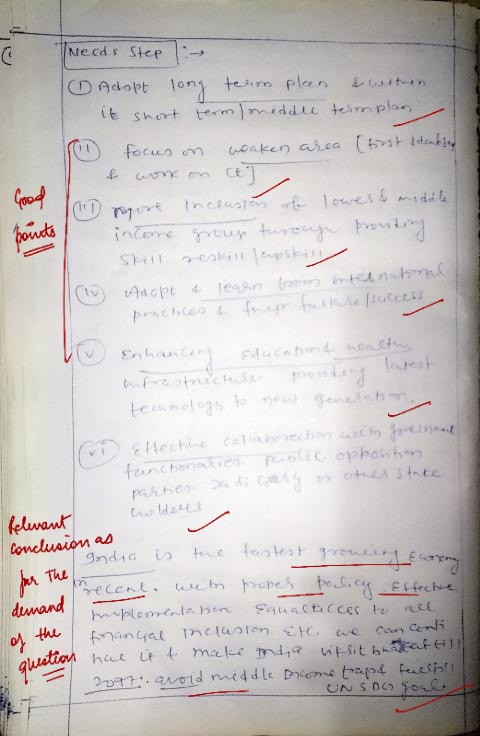 Needs Step :→
(i) Adopt long term plan & within
it short term/middle term plan
(ii) Focus on weaken area [first Identify
& work on it]
(iii) more inclusion of lower & middle
income group through providing
Skill reskill/upskill
(iv) Adopt & learn from international
practices & their failure/success
(v) Enhancing education & health
infrastructure providing latest
technology to new generation.
(vi) Effective collaboration with government
functionaries public opposition
parties Judiciary or other stake
holders
Good
points
India is the fastest growing Economy
in recent. with proper policy. Effective
implementation Equal access to all
financial inclusion Etc. we can conti
nue it & make India till
2047. avoid middle income trap & fulfill
UN SDG goal.
Relevant
conclusion as
for The
demand
of the
question